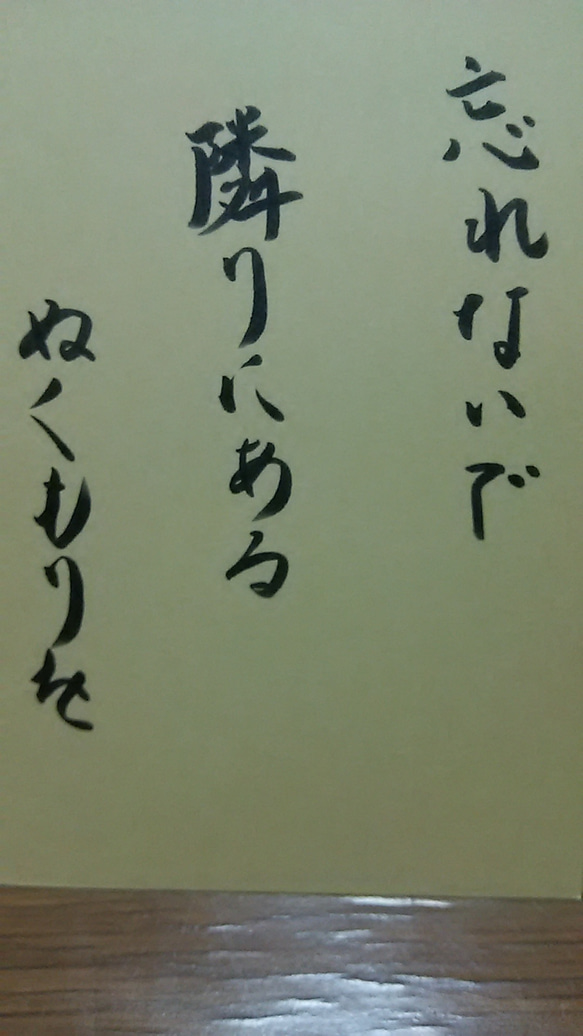 忘れないで
隣りにある
ぬくもりを